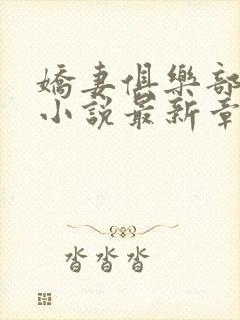 嬌妻俱樂部
小說最新章
沓沓沓